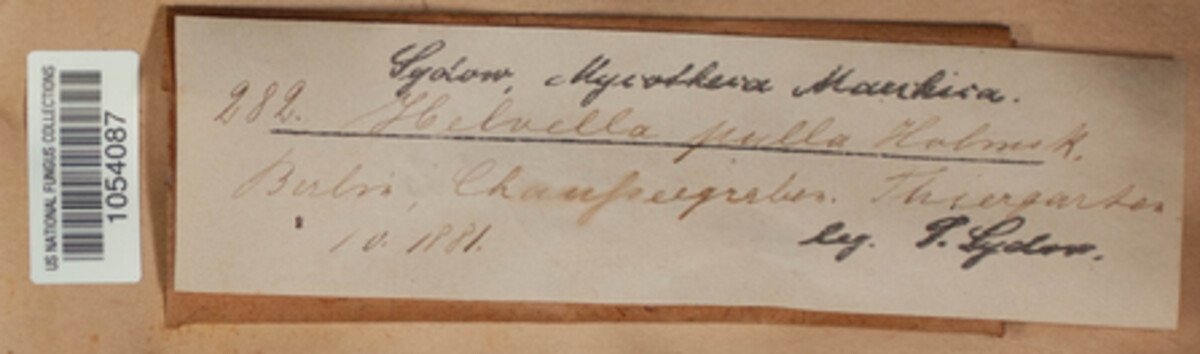 US NATIONAL FUNGUS COLLECTIONS
1054087
Sydow, Mycotheca Marchica.
282. Helvella pulla Holmsk.
Berlin, Chausseegraben. Thiergarten
10. 1881.
leg. P. Sydow.